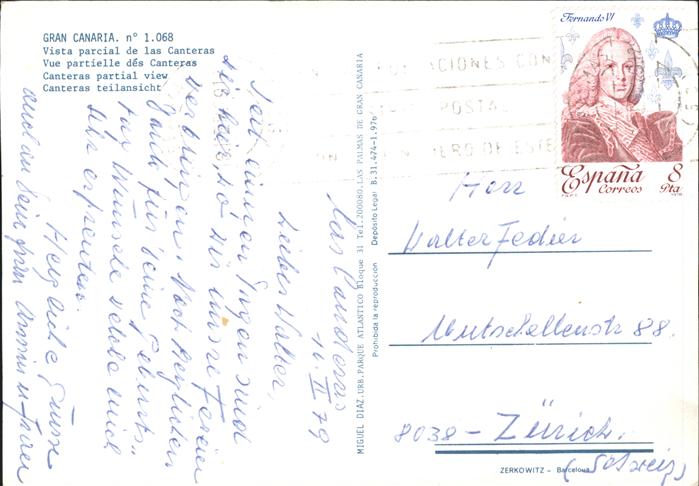 GRAN CANARIA. nº 1.068
Vista parcial de las Canteras
Vue partielle dês Canteras
Canteras partial view
Canteras teilansicht
Fernando VI
España
Correos
8
Pta
CIONES CON
POSTAL
NUMERO DE ESTE
MIGUEL DIAZ.URB.PARQUE ATLANTICO Bloque 31 Tel.200080.LAS PALMAS DE GRAN CANARIA
Prohibida la reproducción Depósito Legal B.31.474-1.976
Las Canteras
16.II 79
Lieber Walter,
Seit einigen Tagen sind
wir hier, wo wir unsre Ferien
verbringen. Noch herzlichen
Dank für deine Geburts-
tag Wünsche welche mich
sehr erfreuten.
Herzliche Grüsse
auch an Deine Frau
Herr
Walter Fedier
Mutschellenstr 88.
8038 - Zürich.
(Schweiz)
ZERKOWITZ - Barcelona